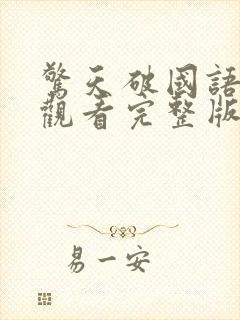 驚天破國語
觀看完整版
易一安